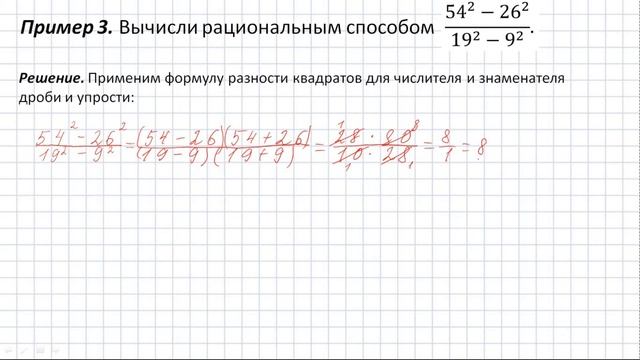 Пример 3. Вычисли рациональным способом (54² − 26²)/(19² − 9²).
Решение. Применим формулу разности квадратов для числителя и знаменателя
дроби и упрости:
(54² − 26²)/(19² − 9²) = ((54 − 26)(54 + 26))/((19 − 9)(19 + 9)) = (28 · 80)/(10 · 28) = 8/1 = 8